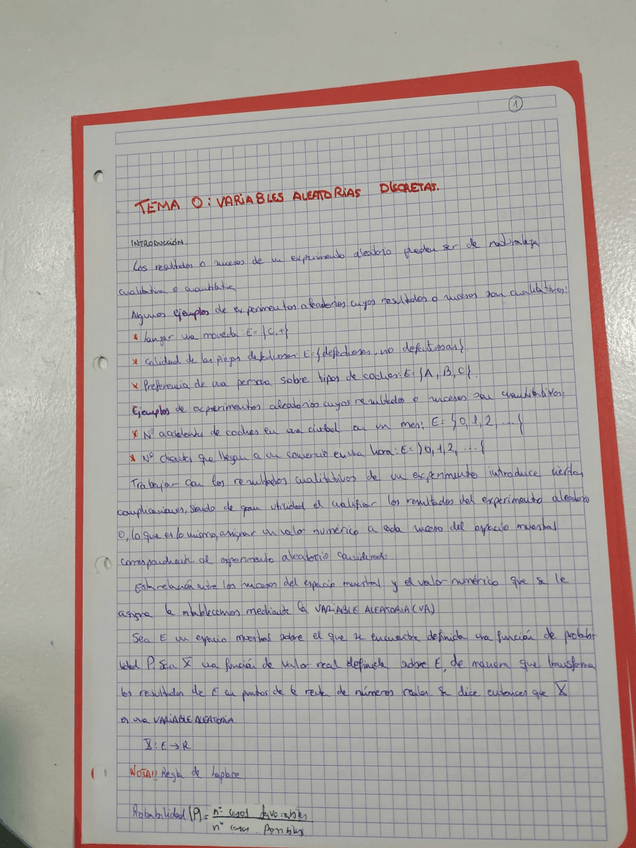 1
TEMA 0: VARIABLES ALEATORIAS DISCRETAS.
INTRODUCCIÓN.
Los resultados o sucesos de un experimento aleatorio pueden ser de naturaleza
cualitativa o cuantitativa
Algunos ejemplos de experimentos aleatorios cuyos resultados o sucesos son cualitativos:
* Lanzar una moneda E={C,+}
* Calidad de las piezas defectuosas E={defectuosas, no defectuosas}
* Preferencia de una persona sobre tipos de coches: E={A, B, C}.
Ejemplos de experimentos aleatorios cuyos resultados o sucesos son cuantitativos;
* Nº accidentes de coches en una ciudad en un mes: E={0,1,2,...}
* Nº clientes que llegan a un comercio en una hora: E={0,1,2,...}
Trabajar con los resultados cualitativos de un experimento introduce ciertas
complicaciones, siendo de gran utilidad el cuantificar los resultados del experimento aleatorio
o, lo que es lo mismo, asignar un valor numérico a cada suceso del espacio muestral
correspondiente al experimento aleatorio considerado.
Esta relación entre los sucesos del espacio muestral y el valor numérico que se le
asigna la establecemos mediante la VARIABLE ALEATORIA (VA)
Sea E un espacio muestral sobre el que se encuentra definida una función de probabi
lidad P. Sea X una función de valor real definida sobre E, de manera que transforma
los resultados de E en puntos de la recta de números reales. Se dice entonces que X
es una VARIABLE ALEATORIA
X: E → R
NOTA!! Regla de Laplace
Probabilidad (P) = nº casos favorables
nº casos posibles